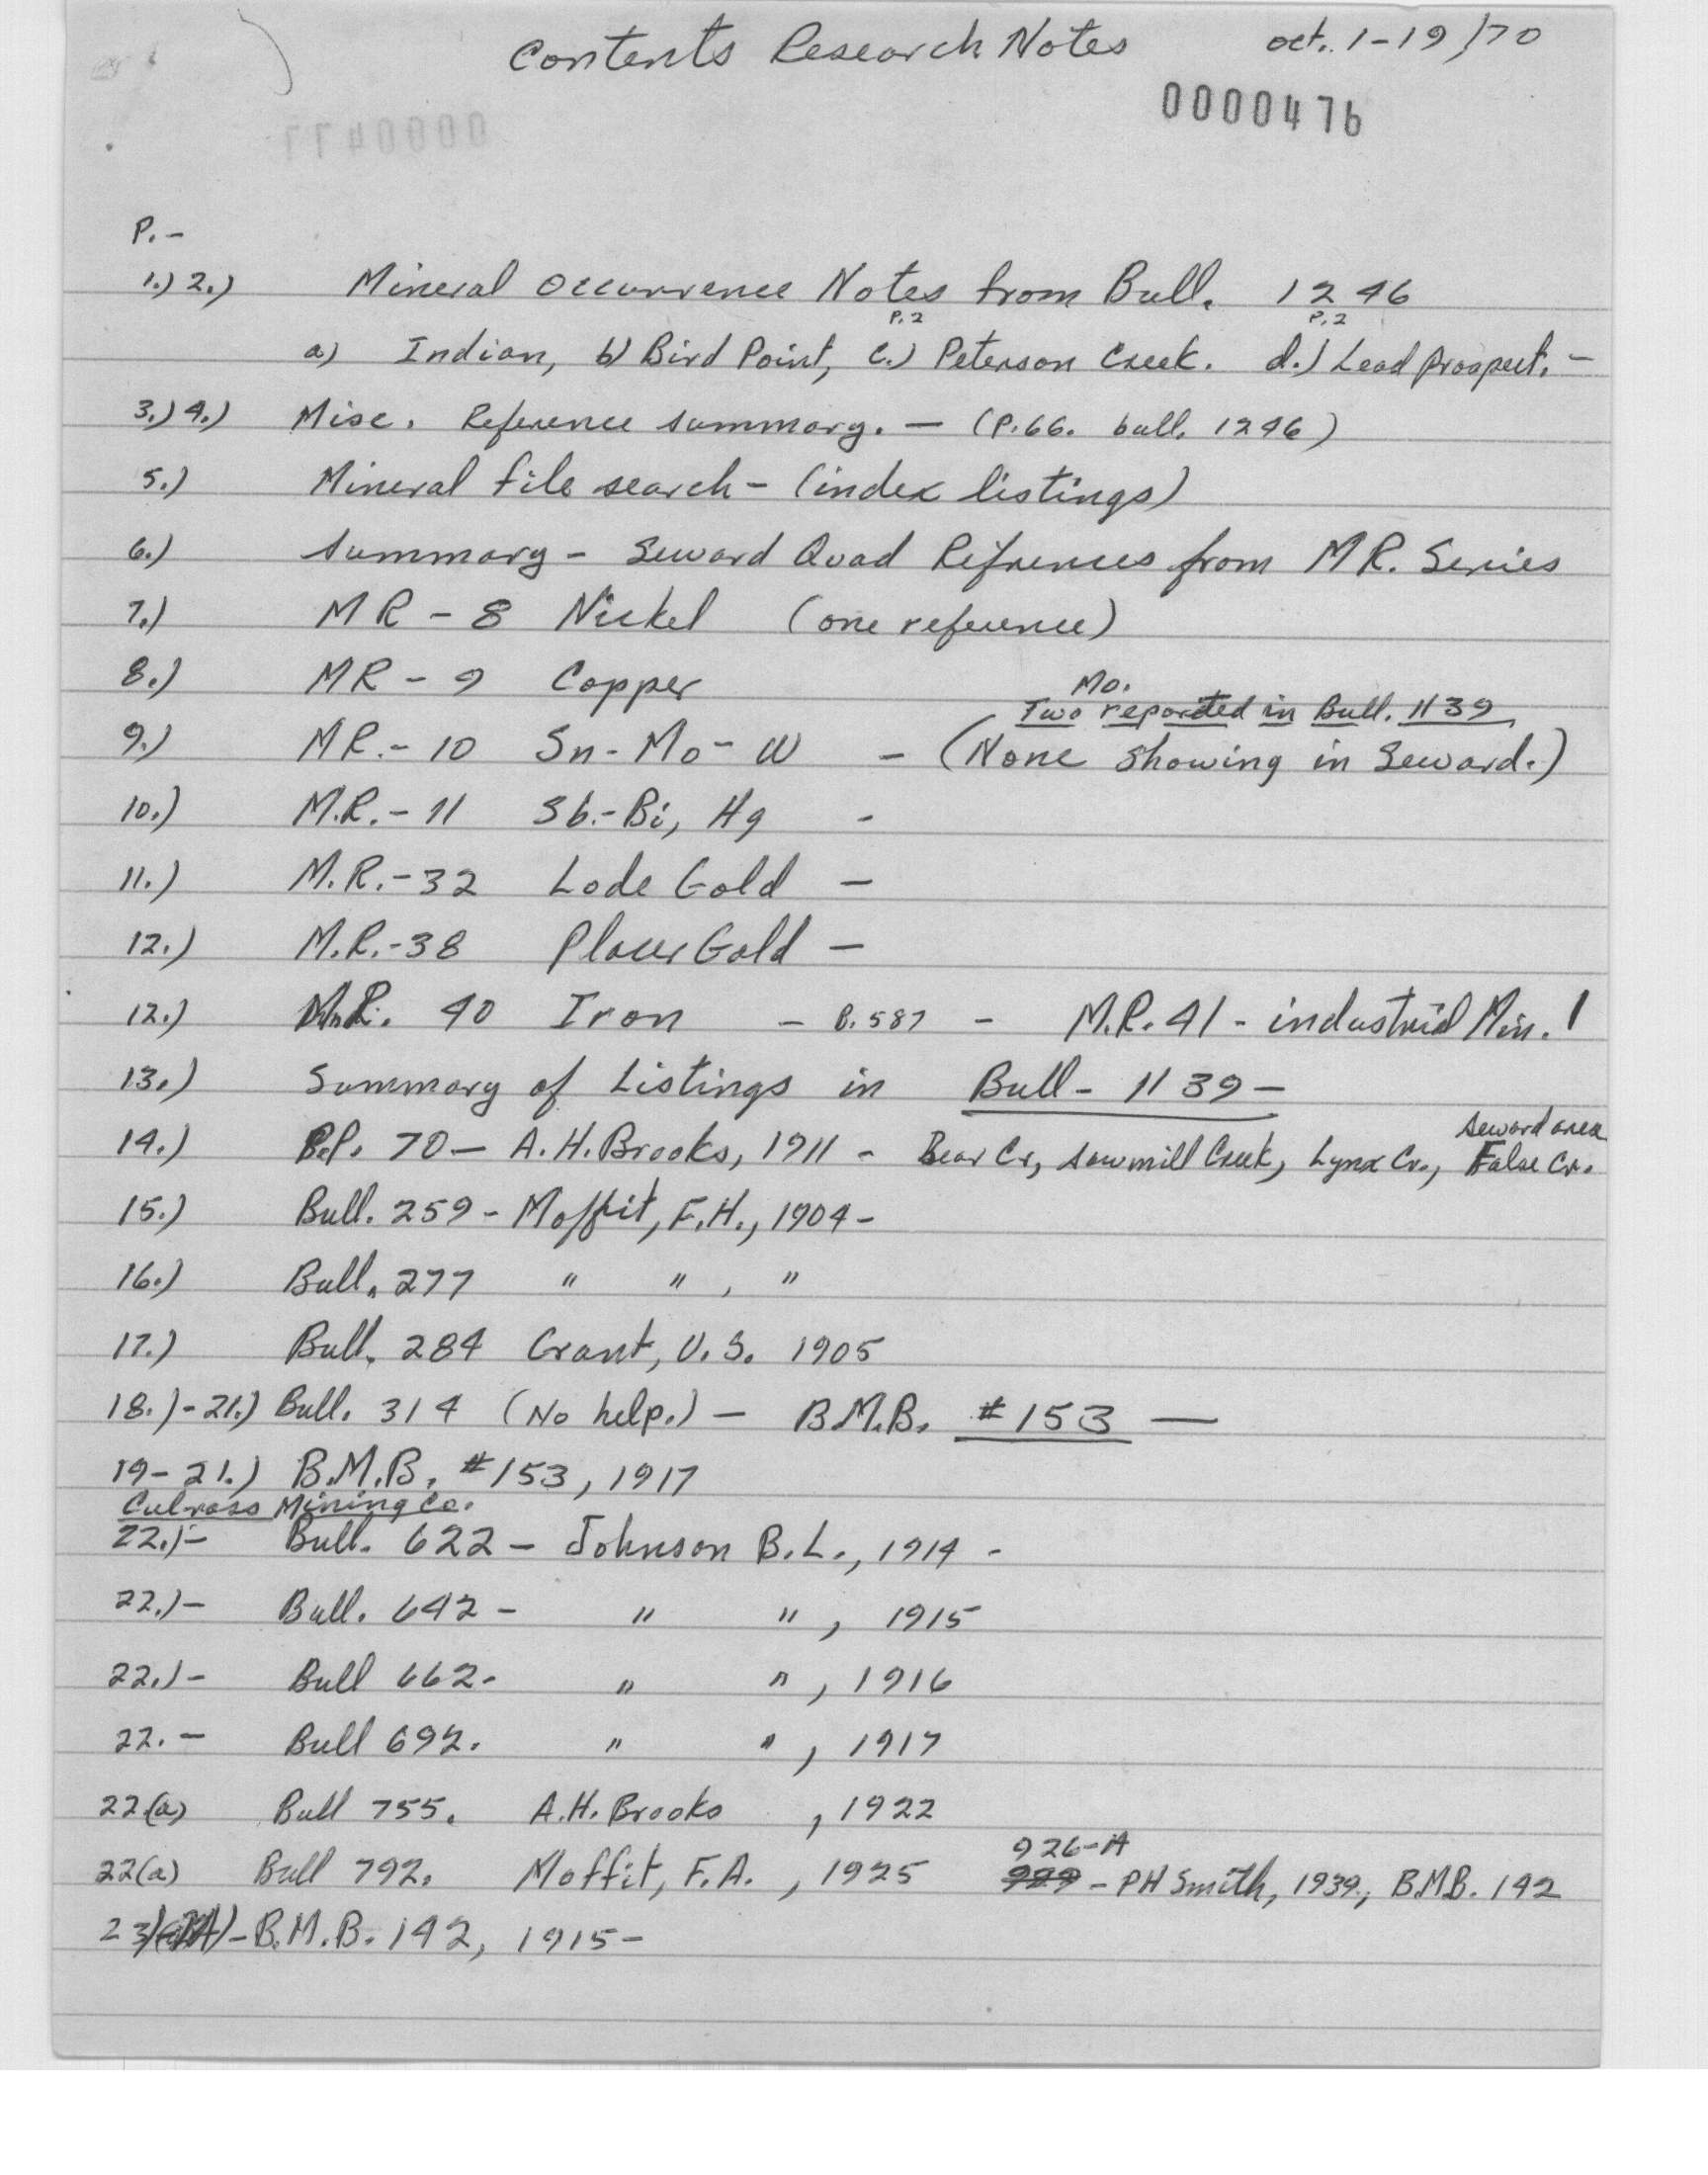 Contents Research Notes oct. 1-19/70
0000476
P.-
1.) 2.) Mineral Occurrence Notes from Bull. 1246
P.2 P.2
a) Indian, b) Bird Point, c.) Peterson Creek. d.) Lead Prospect. -
3.) 4.) Misc. Reference summary. — (P.66. bull. 1246)
5.) Mineral file search - (index listings)
6.) Summary - Seward Quad Refrences from MR. Series
7.) MR - 8 Nickel (one reference)
8.) MR - 9 Copper
Mo.
Two reported in Bull. 1139
9.) MR.- 10 Sn-Mo-W - (None showing in Seward.)
10.) M.R.- 11 Sb.-Bi, Hg -
11.) M.R.-32 Lode Gold —
12.) M.R.-38 Placer Gold —
12.) M.R. 40 Iron - B. 587 - M.R. 41 - industrial Min. !
13.) Summary of Listings in Bull- 1139 —
Seward area
14.) P.P. 70 — A.H. Brooks, 1911 - Bear Cr, Sawmill Creek, Lynx Cr., False Cr.
15.) Bull. 259 - Moffit, F.H., 1904 -
16.) Bull. 277 " " , "
17.) Bull. 284 Grant, U.S. 1905
18.)-21.) Bull. 314 (No help.) — B.M.B. #153 —
19-21.) B.M.B. #153, 1917
Culross Mining Co.
22.)- Bull. 622 - Johnson B.L., 1914 -
22.)- Bull. 642 - " " , 1915
22.)- Bull 662. " " , 1916
22.- Bull 692. " " , 1917
22(a) Bull 755. A.H. Brooks , 1922
926-A
22(a) Bull 792. Moffit, F.A. , 1925 - PH Smith, 1939, B.M.B. 142
23) - B.M.B. 142, 1915 -